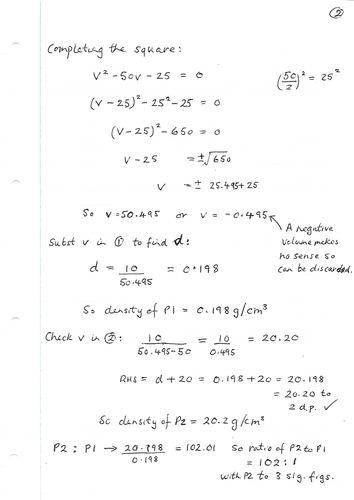 ②
Completing the square:
v² - 50v - 25 = 0
(50/2)² = 25²
(v - 25)² - 25² - 25 = 0
(v - 25)² - 650 = 0
v - 25 = ±√650
v = ± 25.495 + 25
So v = 50.495 or v = -0.495
A negative
volume makes
no sense so
can be discarded.
Subst v in ① to find d:
d = 10/50.495 = 0.198
So density of P1 = 0.198 g/cm³
Check v in ②: 10/(50.495-50) = 10/0.495 = 20.20
RHS = d + 20 = 0.198 + 20 = 20.198
= 20.20 to
2 d.p. ✓
So density of P2 = 20.2 g/cm³
P2 : P1 → 20.198/0.198 = 102.01 so ratio of P2 to P1
= 102:1
with P2 to 3 sig. figs.